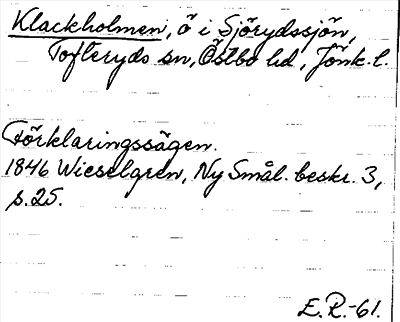 Klackholmen, ö i Sjörydssjön,
Tofteryds sn, Östbo hd, Jönk. l.
Förklaringssägen.
1846 Wieselgren, Ny Smål. beskr. 3,
s. 25.
E. R. -61.